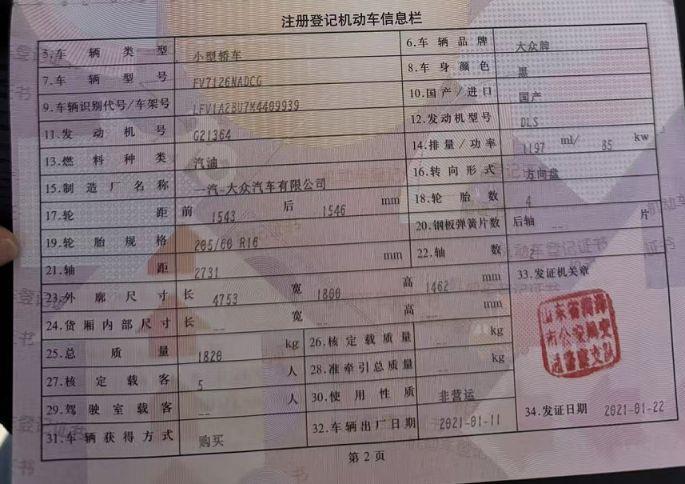 注册登记机动车信息栏
5.车辆类型 小型轿车 6.车辆品牌 大众牌
7.车辆型号 FV7126NADCG 8.车身颜色 黑
9.车辆识别代号/车架号 LFV1A2BU7M4409939 10.国产/进口 国产
11.发动机号 G21364 12.发动机型号 DLS
13.燃料种类 汽油 14.排量/功率 1197 ml/ 85 kw
15.制造厂名称 一汽-大众汽车有限公司 16.转向形式 方向盘
17.轮距 前 1543 后 1546 mm 18.轮胎数 4
19.轮胎规格 205/60 R16 20.钢板弹簧片数 后轴 -- 片
21.轴距 2731 mm 22.轴数 2
23.外廓尺寸 长 4753 宽 1800 高 1462 mm 33.发证机关章
24.货厢内部尺寸 长 -- 宽 -- 高 -- mm
25.总质量 1820 kg 26.核定载质量 -- kg
27.核定载客 5 人 28.准牵引总质量 -- kg
29.驾驶室载客 -- 人 30.使用性质 非营运
31.车辆获得方式 购买 32.车辆出厂日期 2021-01-11 34.发证日期 2021-01-22
第2页